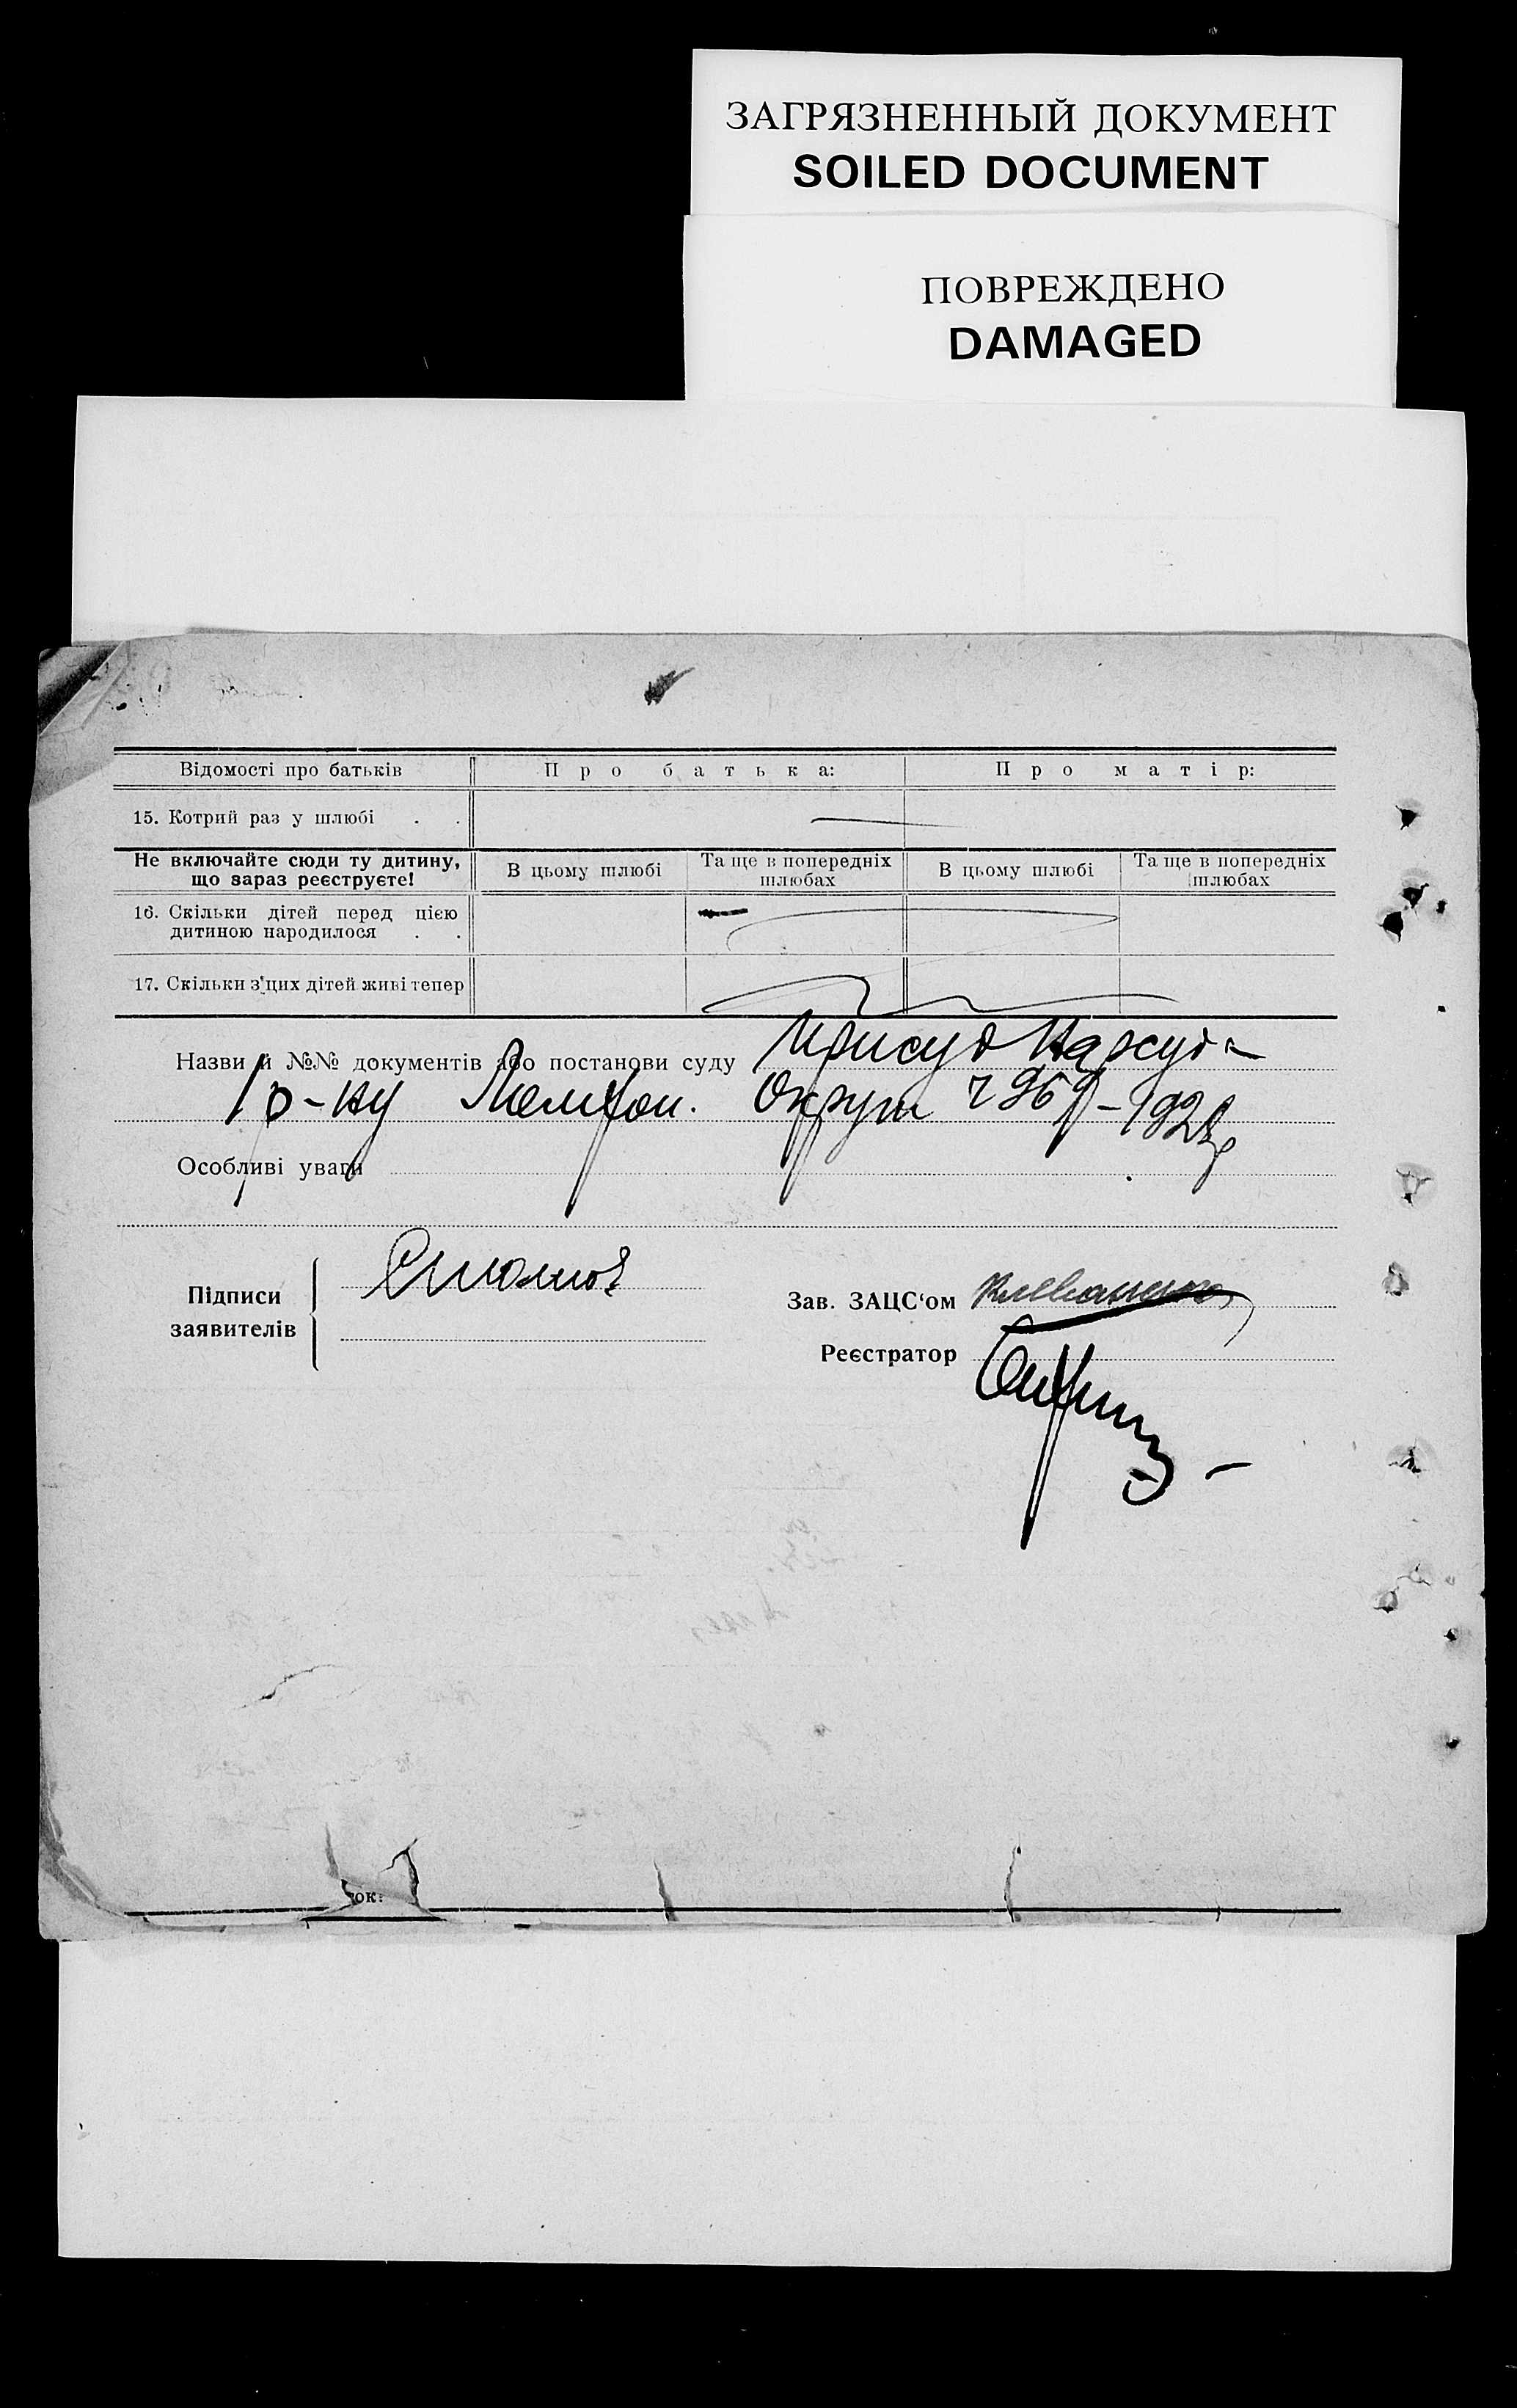 ЗАГРЯЗНЕННЫЙ ДОКУМЕНТ
SOILED DOCUMENT
ПОВРЕЖДЕНО
DAMAGED
Відомості про батьків Про батька: Про матір:
15. Котрий раз у шлюбі . .
Не включайте сюди ту дитину, що зараз реєструєте! В цьому шлюбі Та ще в попередніх шлюбах В цьому шлюбі Та ще в попередніх шлюбах
16. Скільки дітей перед цією
дитиною народилося . .
17. Скільки з цих дітей живі тепер
Назви й №№ документів або постанови суду Присуд Нарсуда
1 р-ну Округи
Особливі уваги
Підписи
заявителів
Зав. ЗАЦС‘ом
Реєстратор
ок: